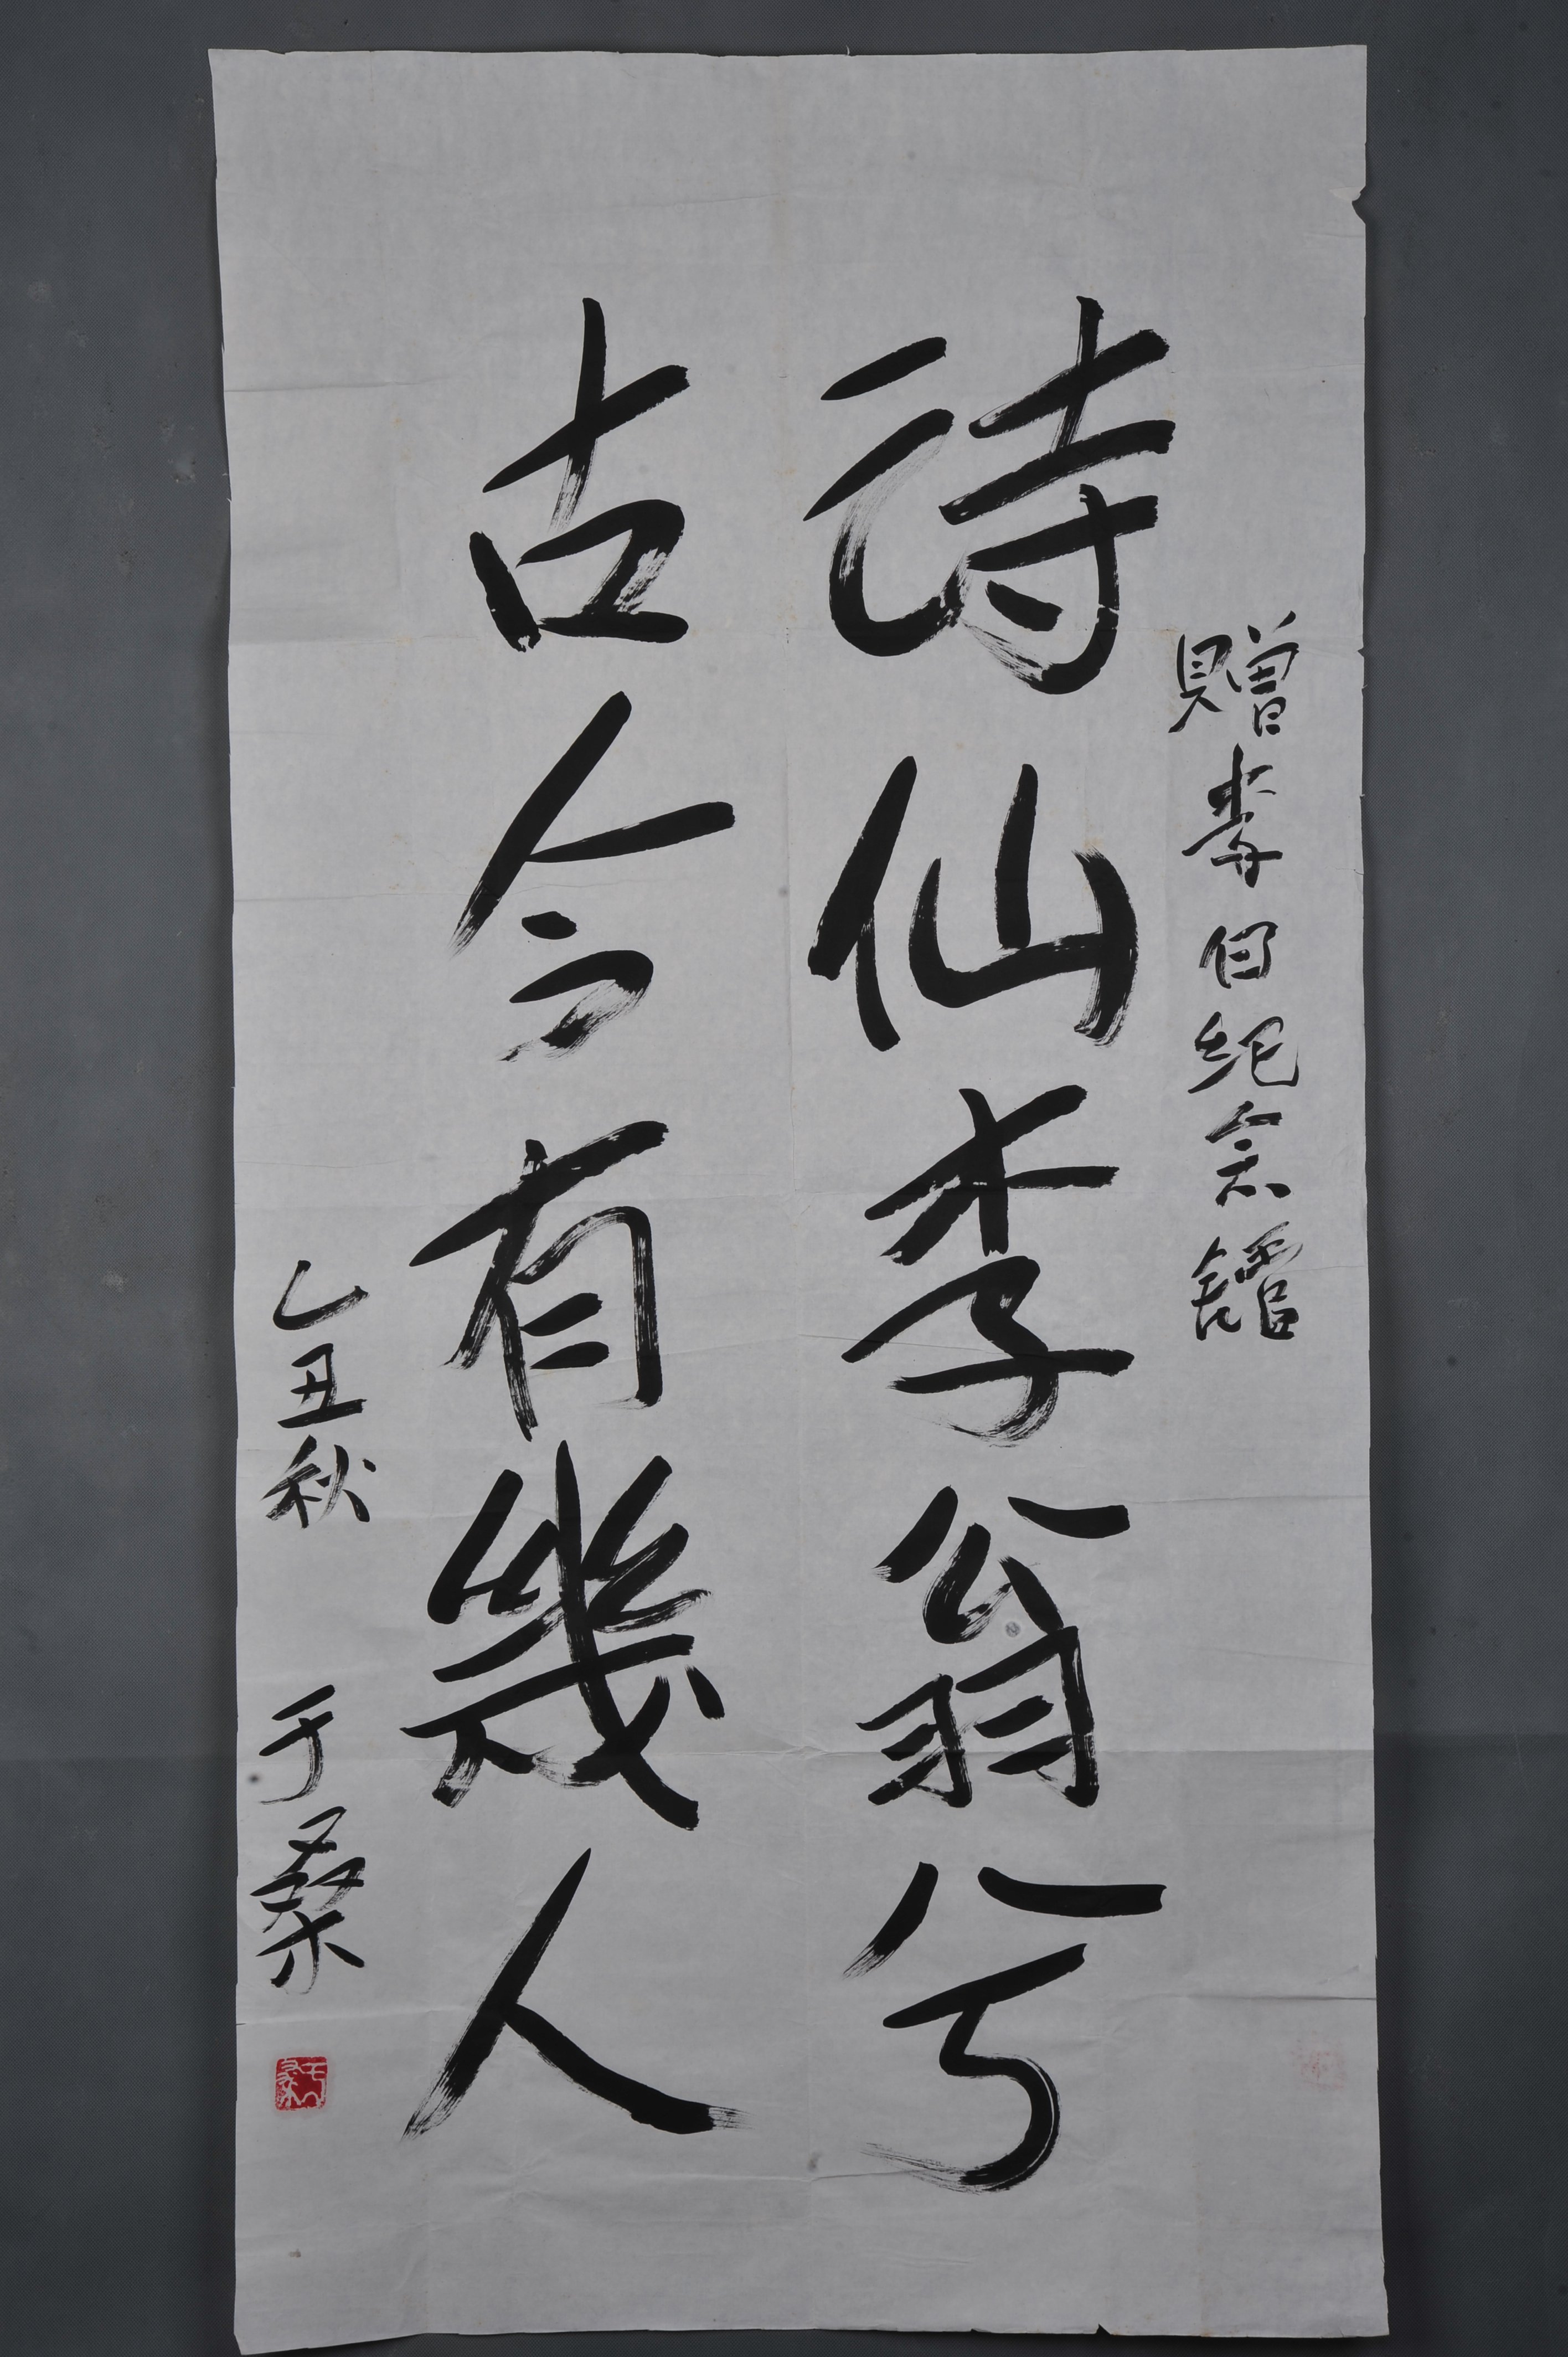 赠李白纪念館
诗仙李翁兮
古今有幾人
乙丑秋 于桑